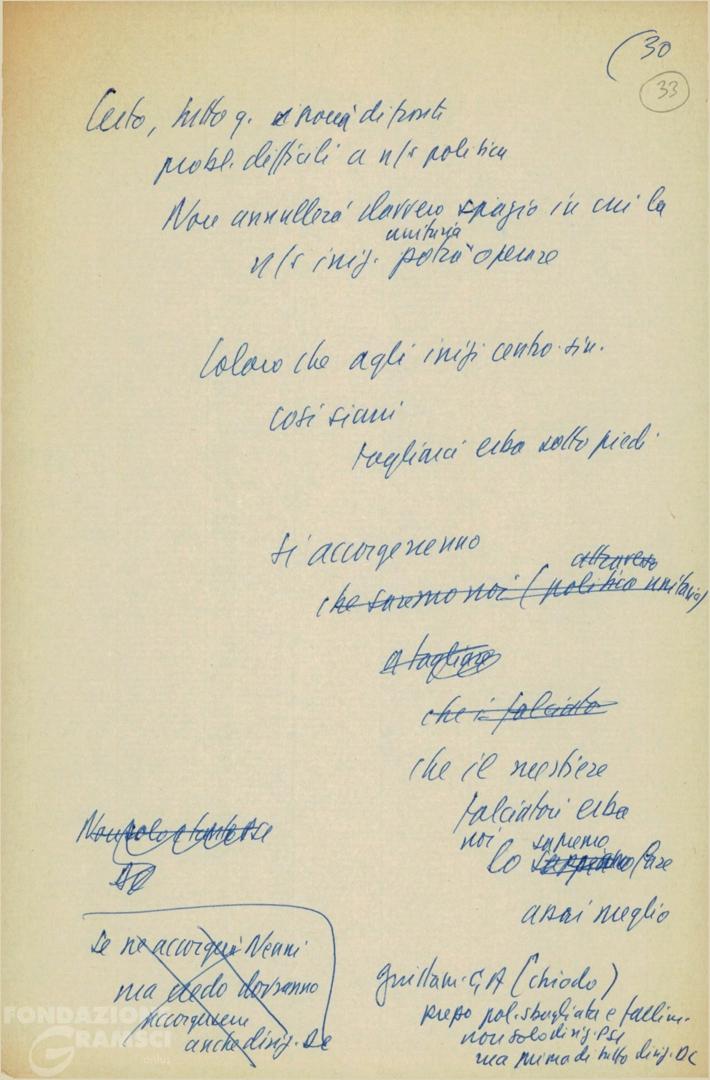 (30
33
Certo, tutto q. porrà di fronte
probl. difficili a n/s politica
Non annullerà davvero spazio in cui la
unitaria
n/s iniz. potrà operare
Coloro che agli inizi centro-sin.
così siani
tagliarci erba sotto piedi
Si accorgeranno
attraverso
che saremo noi (politica unitaria)
a tagliare
che i falciato
che il mestiere
falciatori erba
noi sapremo
lo fare
assai meglio
Non
Se ne accorgerà Nenni
ma credo dovranno
accorgersene
anche dirig. DC
(chiodo)
pol. sbagliata e fallim.
non solo dirig. PSI
ma prima di tutto dirig. DC
FONDAZIONE
GRAMSCI
onlus